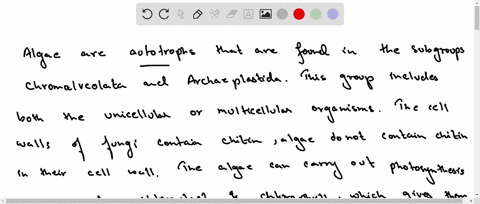 Algae are autotrophs that are found in the subgroups
Chromalveolata and Archaeplastida. This group includes
both the unicellular or multicellular organisms. The cell
walls of fungi contain chitin, algae do not contain chitin
in their cell wall. The algae can carry out photosynthesis
& chlorophyll, which gives them